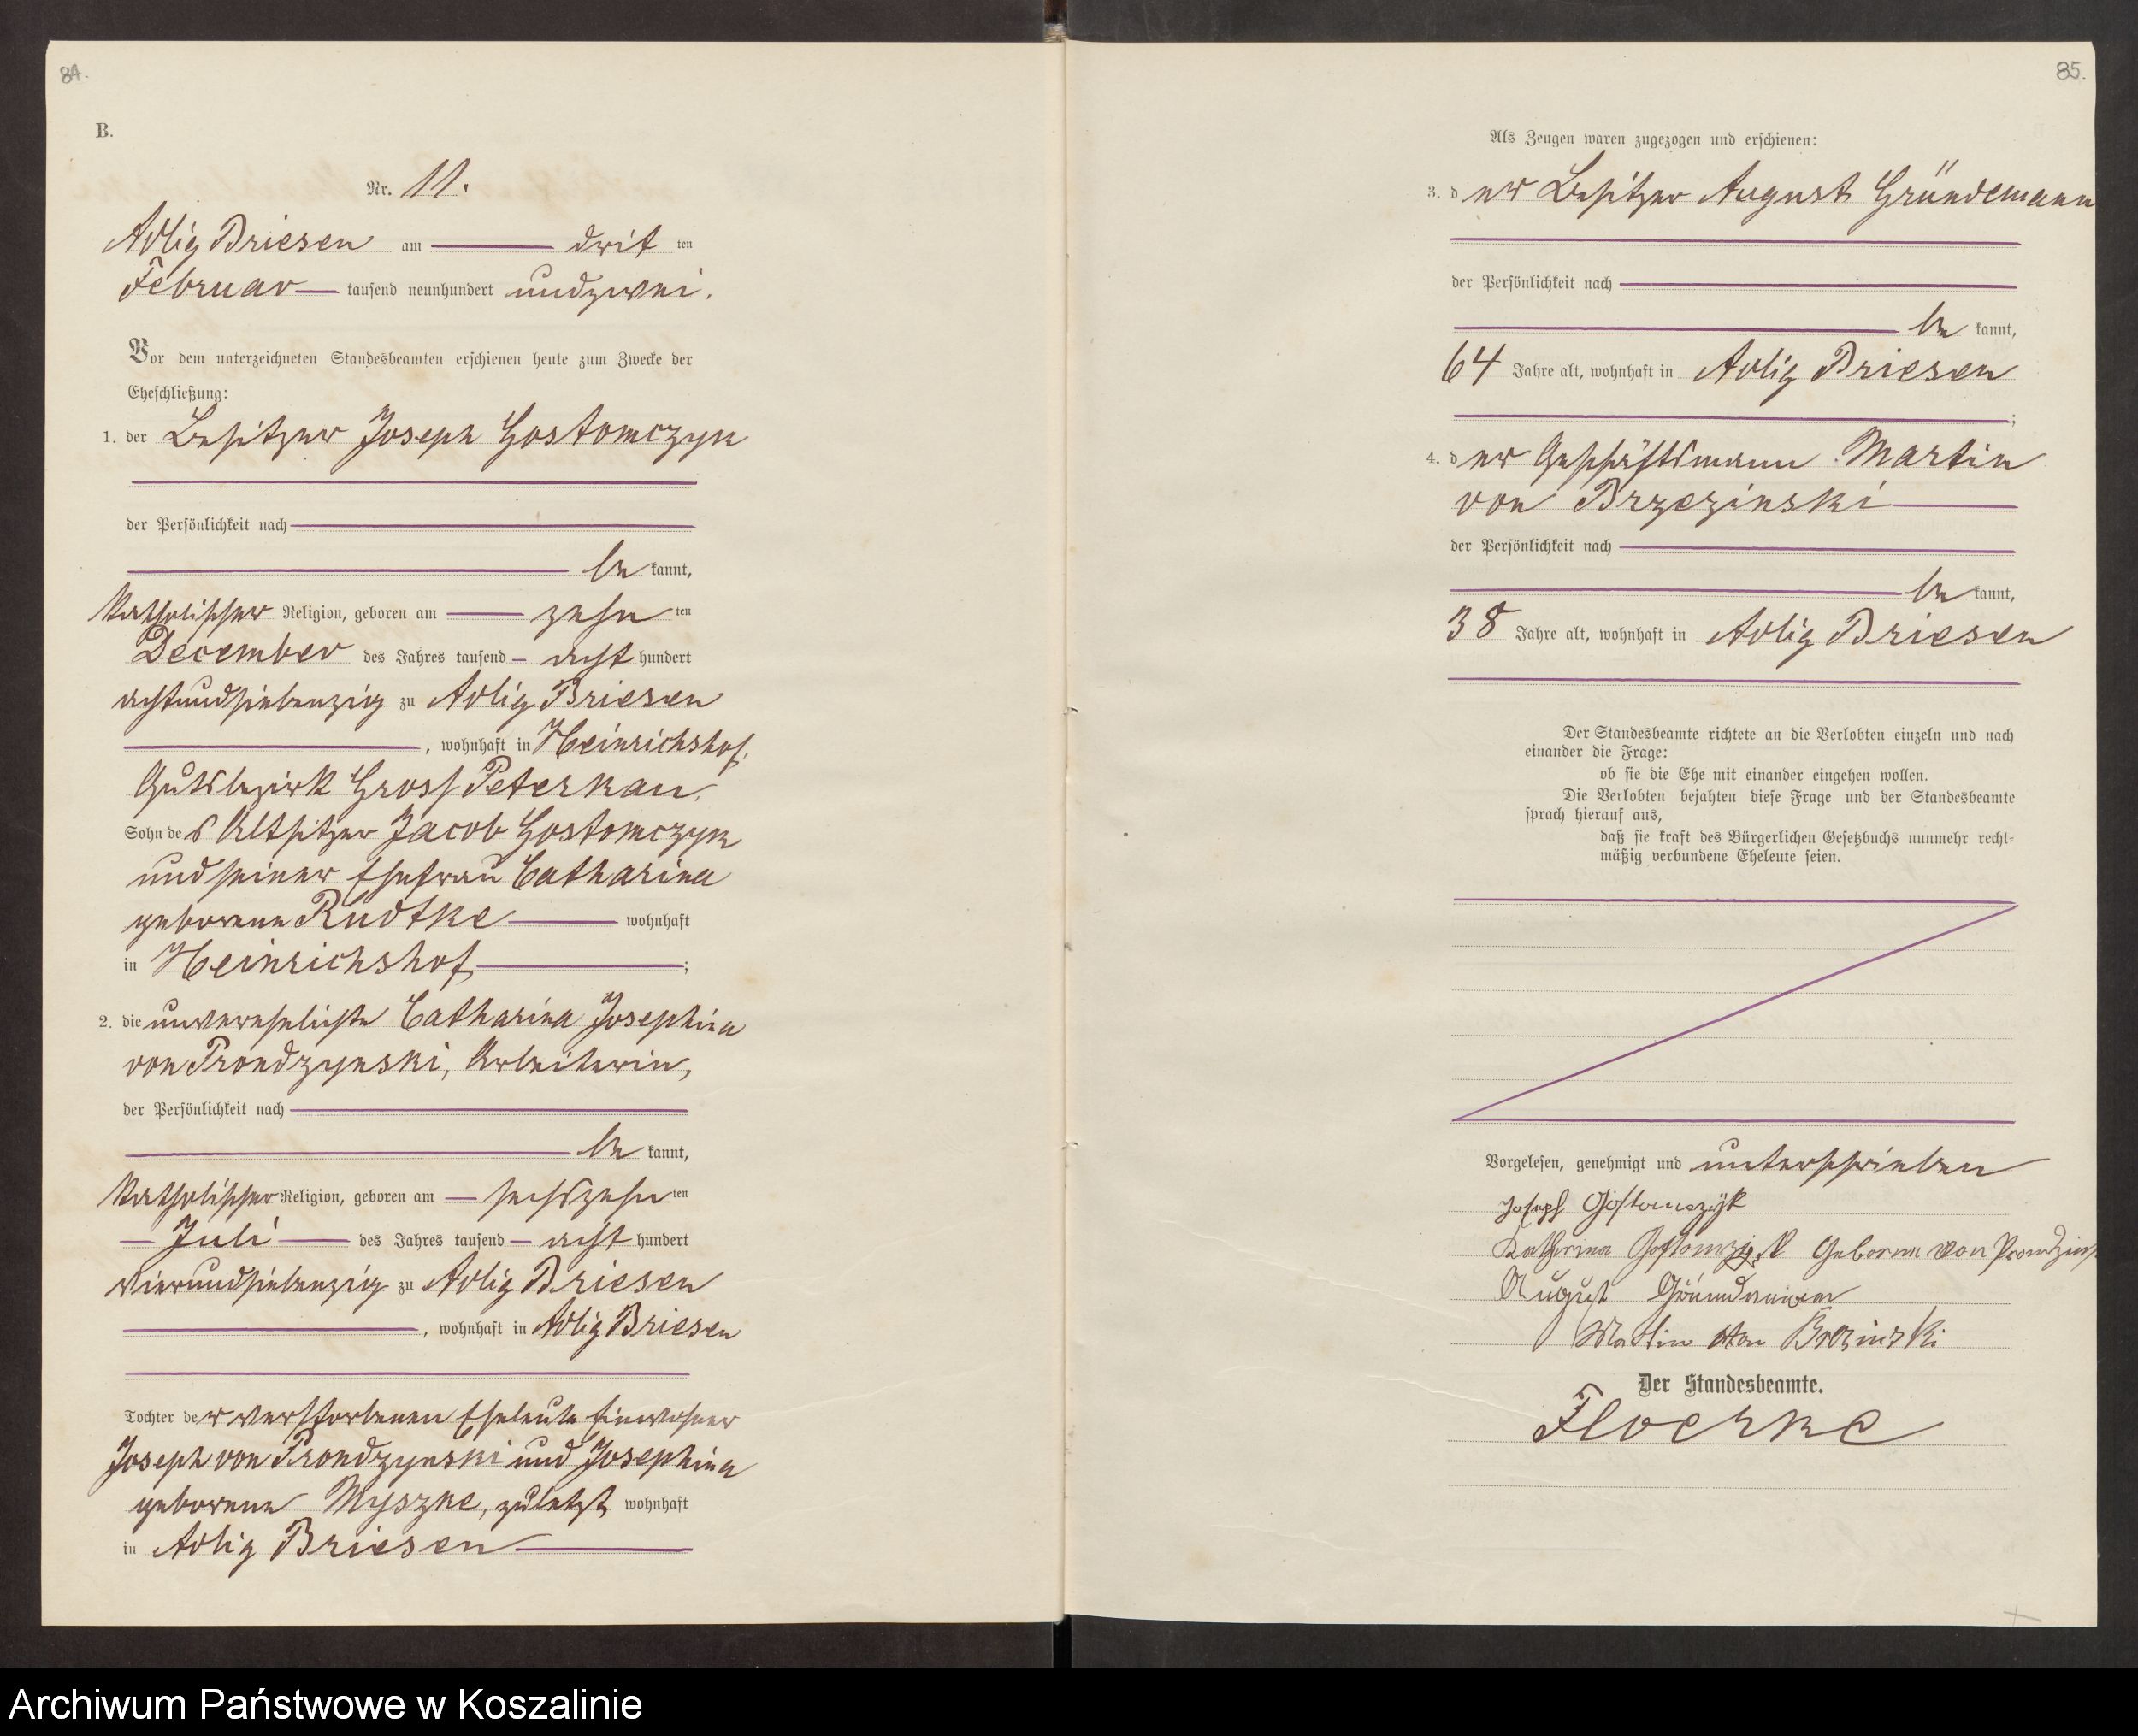 84.
B.
Nr. 11.
Adlig Briesen am dritten
Februar tausend neunhundert undzwei.
Vor dem unterzeichneten Standesbeamten erschienen heute zum Zwecke der
Eheschließung:
1. der Besitzer Joseph Gostomczyk
der Persönlichkeit nach
bekannt,
katholischer Religion, geboren am zehnten
December des Jahres tausend achthundert
achtundsiebenzig zu Adlig Briesen
, wohnhaft in Heinrichshof,
Gutsbezirk Gross Peterkau,
Sohn des Altsitzer Jacob Gostomczyk
und seiner Ehefrau Catharina
geborene Rudtke wohnhaft
in Heinrichshof ;
2. die unverehelichte Catharina Josephina
von Prondzynski, Arbeiterin,
der Persönlichkeit nach
bekannt,
katholischer Religion, geboren am sechszehnten
Juli des Jahres tausend achthundert
vierundsiebenzig zu Adlig Briesen
, wohnhaft in Adlig Briesen
Tochter der verstorbenen Eheleute Einwohner
Joseph von Prondzynski und Josephina
geborene Myszke, zuletzt wohnhaft
in Adlig Briesen
85.
Als Zeugen waren zugezogen und erschienen:
3. der Besitzer August Gründemann
der Persönlichkeit nach
bekannt,
64 Jahre alt, wohnhaft in Adlig Briesen
;
4. der Geschäftsmann Martin
von Brzezinski
der Persönlichkeit nach
bekannt,
38 Jahre alt, wohnhaft in Adlig Briesen
Der Standesbeamte richtete an die Verlobten einzeln und nach
einander die Frage:
ob sie die Ehe mit einander eingehen wollen.
Die Verlobten bejahten diese Frage und der Standesbeamte
sprach hierauf aus,
daß sie kraft des Bürgerlichen Gesetzbuchs nunmehr recht-
mäßig verbundene Eheleute seien.
Vorgelesen, genehmigt und unterschrieben
Joseph Gostomczyk
Katherina Geborne von
August
Martin von
Der Standesbeamte.
Floerke
Archiwum Państwowe w Koszalinie